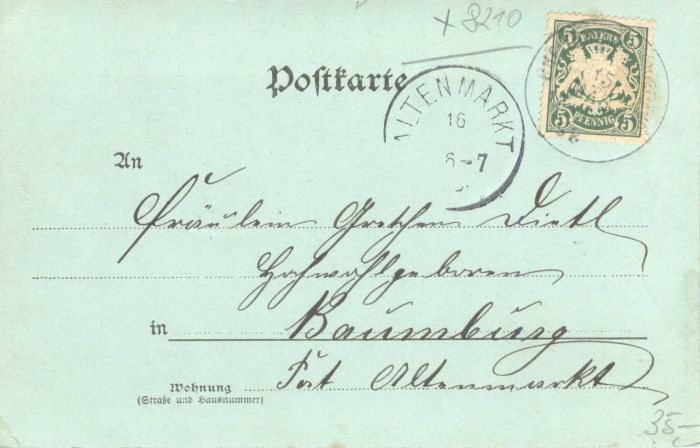 x 8210
BAYERN
5 5
PFENNIG
5 5
Postkarte
ALTENMARKT
16
6-7
An
Fräulein Gretchen Dietl
Hochwohlgeboren
in Baumburg
Post Altenmarkt
Wohnung
(Straße und Hausnummer)
35-